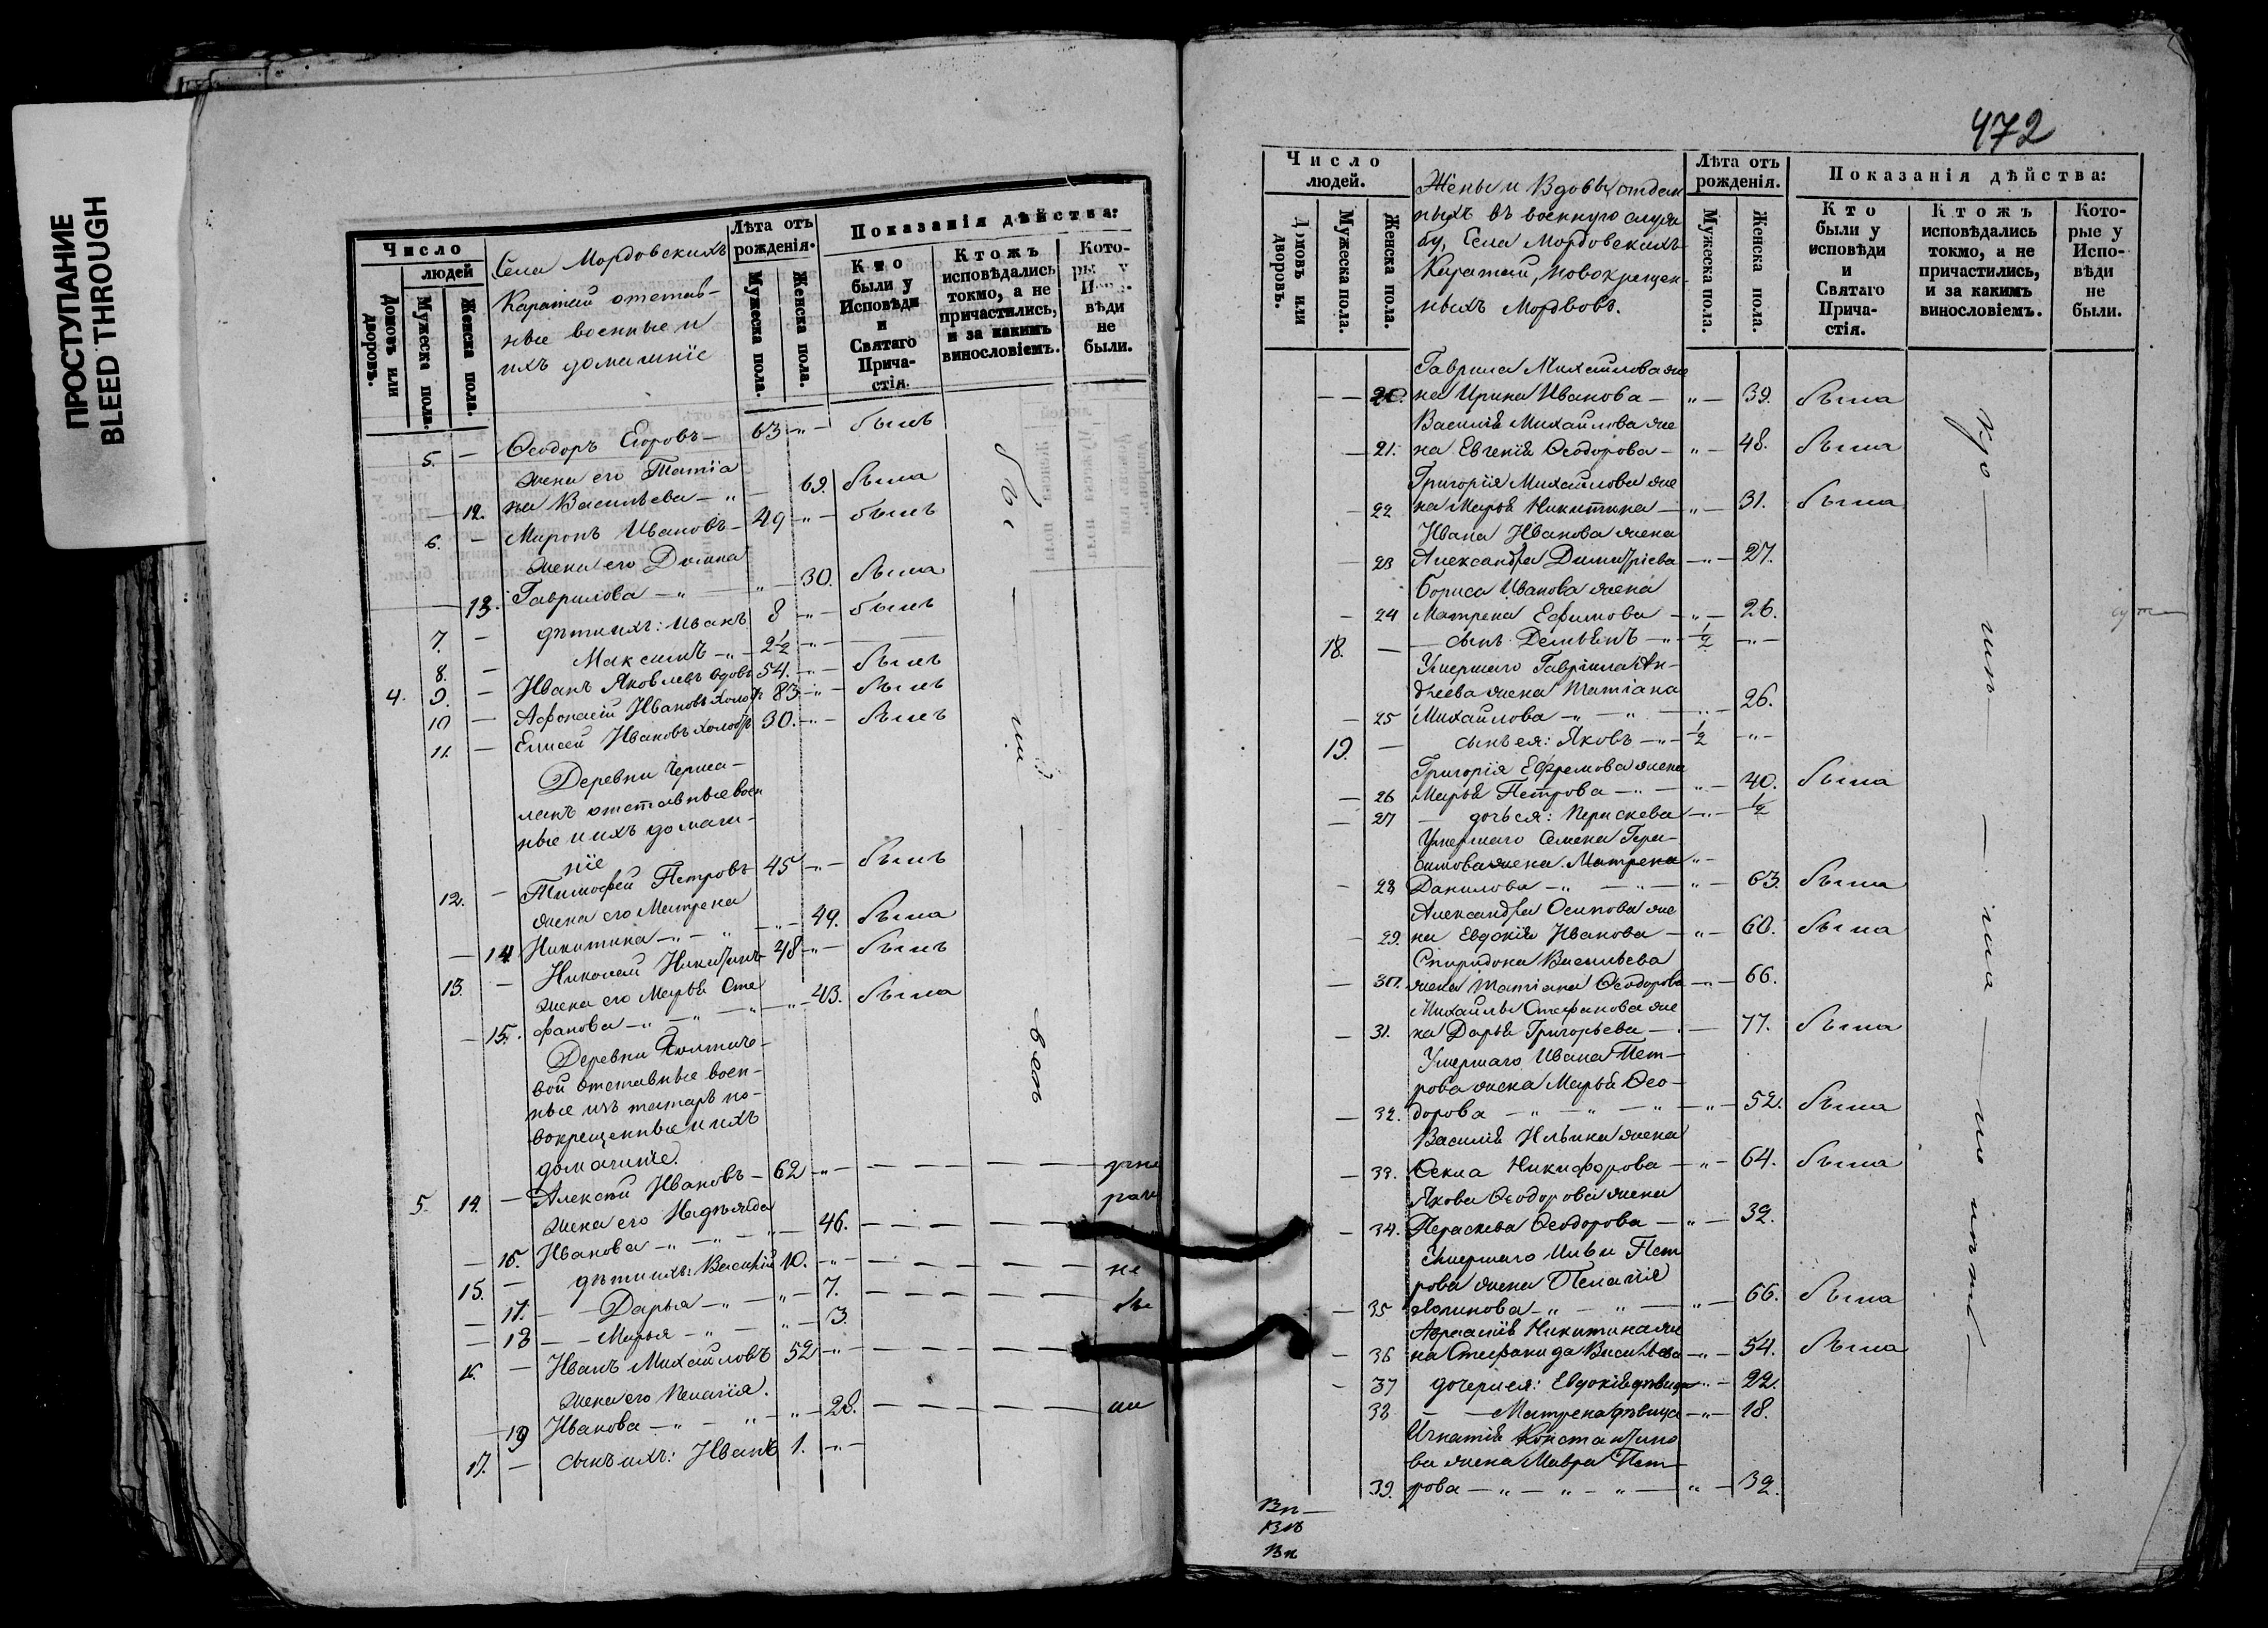 ПРОСТУПАНИЕ
BLEED THROUGH
Число
людей
Домовъ или дворовъ.
Мужеска пола.
Женска пола.
Села Мордовскихъ
Каратай отстав-
ные военные и
ихъ домашніе
Лѣта отъ
рожденія.
Мужеска пола.
Женска пола.
Показанія дѣйства:
Кто
были у
Исповѣди
и
Святаго
Прича-
стія.
Ктожъ
исповѣдались
токмо, а не
причастились,
и за какимъ
винословіемъ.
Кото-
рые у
Испо-
вѣди
не
были.
5. — Ѳеодоръ Егоровъ — 63 — " — былъ
жена его Татіа
— 12. на Васильева — " — 69. была
6. — Миронъ Ивановъ — 49 — " — былъ
жена его Домна
— 13. Гаврилова — " — " — 30. была
7. — дѣти ихъ: Иванъ 8 — " — былъ
8. — Максимъ — " — 2½ — " —
4. 9. — Иванъ Яковлевъ вдовъ 54. — " — былъ
10 — Афонасій Ивановъ холостъ 83 — " — былъ
11. — Елисей Ивановъ холостъ 30. — " — былъ
Деревни Черма-
ланъ отставные воен
ные и ихъ домаш-
ніе
12. — Тимофей Петровъ 45 — " — былъ
жена его Матрена
— 14 Никитина — " — " — " — 49. была
13. — Николай Никитинъ 48 — " — былъ
жена его Марья Сте
— 15. фанова — " — " — " — 43. была
вой отставные воен-
ные изъ татаръ но-
вокрещенные и ихъ
домашніе.
5. 14. — Алексѣй Ивановъ — 62 — " —
жена его Надѣжда
— 16. Иванова — " — " — 46.
15. — дѣти ихъ: Василій 10. — " —
— 17. — Дарья — " — " — 7.
— 18 — Марья — " — " — 3.
16. — Иванъ Михайловъ 52 — " —
жена его Пелагія.
— 19 Иванова — " — " — " — 28.
17. — сынъ ихъ: Иванъ 1. — " —
не
бы
ли
472
Число
людей.
Домовъ или дворовъ.
Мужеска пола.
Женска пола.
Жены и Вдовы отдан
ныхъ въ военную служ
бу, Села Мордовскихъ
Каратай, новокрещен-
ныхъ Мордвовъ.
Лѣта отъ
рожденія.
Мужеска пола.
Женска пола.
Показанія дѣйства:
Кто
были у
исповѣди
и
Святаго
Прича-
стія.
Ктожъ
исповѣдались
токмо, а не
причастились,
и за какимъ
винословіемъ.
Кото-
рые у
Испо-
вѣди
не
были.
Гаврила Михайлова же
— — 20. на Ирина Иванова — " — 39. была
Василія Михайлова же
— 21. на Евгенія Ѳеодорова — " — 48. была
Григорія Михайлова же
— 22 на Марья Никитина — " — 31. была
Ивана Иванова жена
— 23 Александра Димитріева — " — 27.
Бориса Иванова жена
— 24 Матрена Ефимова — " — 26.
18. — — сынъ Дементій — " — ½ — " —
Умершаго Гавріила Ан-
дреева жена Татіана
— 25 Михайлова — " — " — " — 26.
19. — сынъ ея: Яковъ — " — ½ — " —
Григорія Ефремова жена
— 26 Марья Петрова — " — " — 40. была
— 27 — дочь ея: Параскева — " — ½
Умершаго Семена Гера-
симова жена Матрена " —
— 28 Данилова — " — " — " — 63. была
Александра Осипова же
— 29. на Евдокія Иванова — " — 60. была
Спиридона Васильева
— 30. жена Татіана Ѳеодорова — " — 66.
Михайлы Стефанова же
— 31. на Дарья Григорьева — — 77. была
Умершаго Ивана Пет-
рова жена Марья Ѳео-
— 32. дорова — " — " — " — " — 52. была
Василія Ильина жена
— 33. Ѳекла Никифорова — " — 64. была
Якова Ѳеодорова жена
— 34. Параскева Ѳеодорова — " — 32.
Умершаго Ильи Пет
рова жена Пелагія
— 35 — " — " — " — 66. была
— 36 на Стефанида Васильева — " — 54. была
— 37 дочери ея: Евдокія дѣвица — " — 22.
38 — — Матрена дѣвица — " — 18.
Игнатія Константино
ва жена Мавра Пет
39. рова — " — " — " — " — 32.